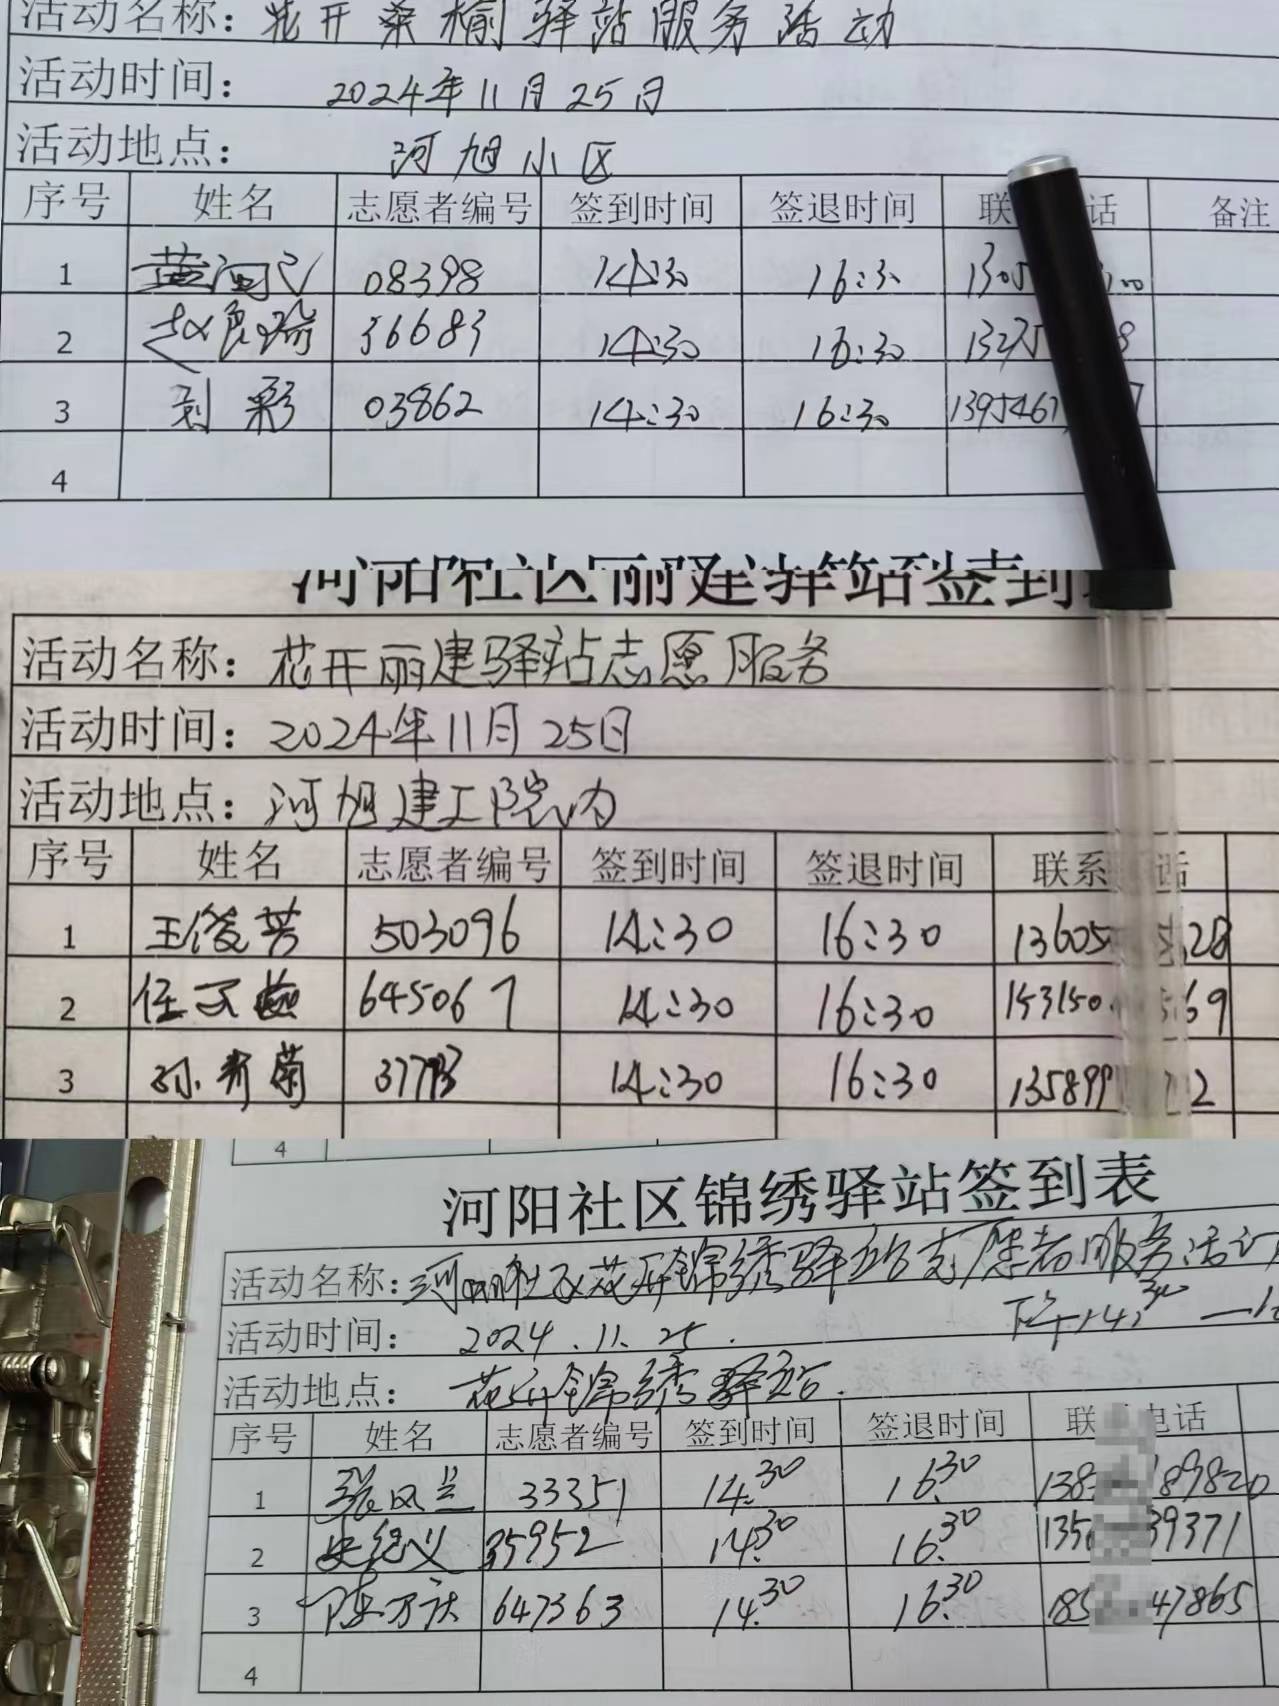 活动名称：花开桑榆驿站服务活动
活动时间： 2024年11月25日
活动地点： 河旭小区
序号 姓名 志愿者编号 签到时间 签退时间 联 话 备注
1 08398 14:30 16:30 1305
2 赵良瑞 36683 14:30 16:30 1325
3 刘彩 03862 14:30 16:30 1395467
4
河阳社区丽建驿站签到
活动名称：花开丽建驿站志愿服务
活动时间：2024年11月25日
活动地点：河旭建工院内
序号 姓名 志愿者编号 签到时间 签退时间 联系 话
1 王俊芳 503096 14:30 16:30 13605 28
2 任 645067 14:30 16:30 153150 69
3 孙 菊 14:30 16:30 135899 2
4
河阳社区锦绣驿站签到表
活动名称：河阳社区花开锦绣驿站志愿者服务活动
活动时间： 2024.11.25. 下午14:30
活动地点： 花开锦绣驿站.
序号 姓名 志愿者编号 签到时间 签退时间 联 电话
1 张风兰 33351 14:30 16:30 138 89820
2 史纪义 35952 14:30 16:30 135 39371
3 陈万庆 647363 14:30 16:30 185 47865
4